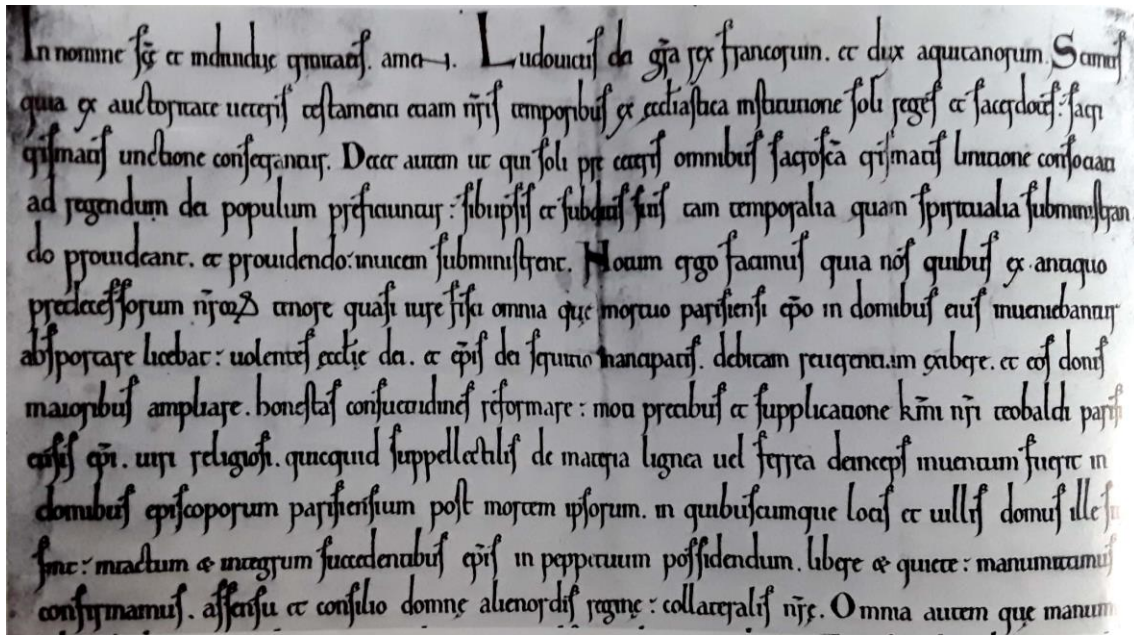 In nomine sc̄ę et indiuiduę trinitatis. amen. Ludouicus dei gr̄a rex francorum. et dux aquitanorum. Scimus
quia ex auctoritate ueteris testamenti etiam nr̄is temporibus ex ecclesiastica institutione soli reges et sacerdotes: sacri
crismatis unctione consecrantur. Decet autem ut qui soli pre ceteris omnibus sacrosc̄a crismatis linitione consociati
ad regendum dei populum preficiuntur: sibi ipsis et subditis suis tam temporalia quam spiritualia subministran
do prouideant. et prouidendo: inuicem subministrent. Notum ergo facimus quia nos quibus ex antiquo
predecessorum nr̄orum tenore quasi iure fisci omnia quę mortuo parisiensi ep̄o in domibus eius inueniebantur
absportare licebat: uolentes ęcclię dei. et ep̄is dei seruitio mancipatis. debitam reuerentiam exibere. et eos donis
maioribus ampliare. honestas consuetudines reformare: moti precibus et supplicatione km̄i nr̄i teobaldi paris
ep̄i. uiri religiosi. quicquid suppellectilis de materia lignea uel ferrea deinceps inuentum fuerit in
domibus episcoporum parisiensium post mortem ipsorum. in quibuscumque locis et uillis domus ille
sint: intactum & integrum succedentibus ep̄is in perpetuum possidendum. libere & quiete: manumittimus
confirmamus. assensu et consilio domnę alienordis reginę: collateralis nr̄ę. Omnia autem quę manum